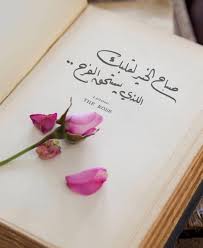 صباح الخير لقلبك
الذي يستحق الفرح ..
THE ROSE